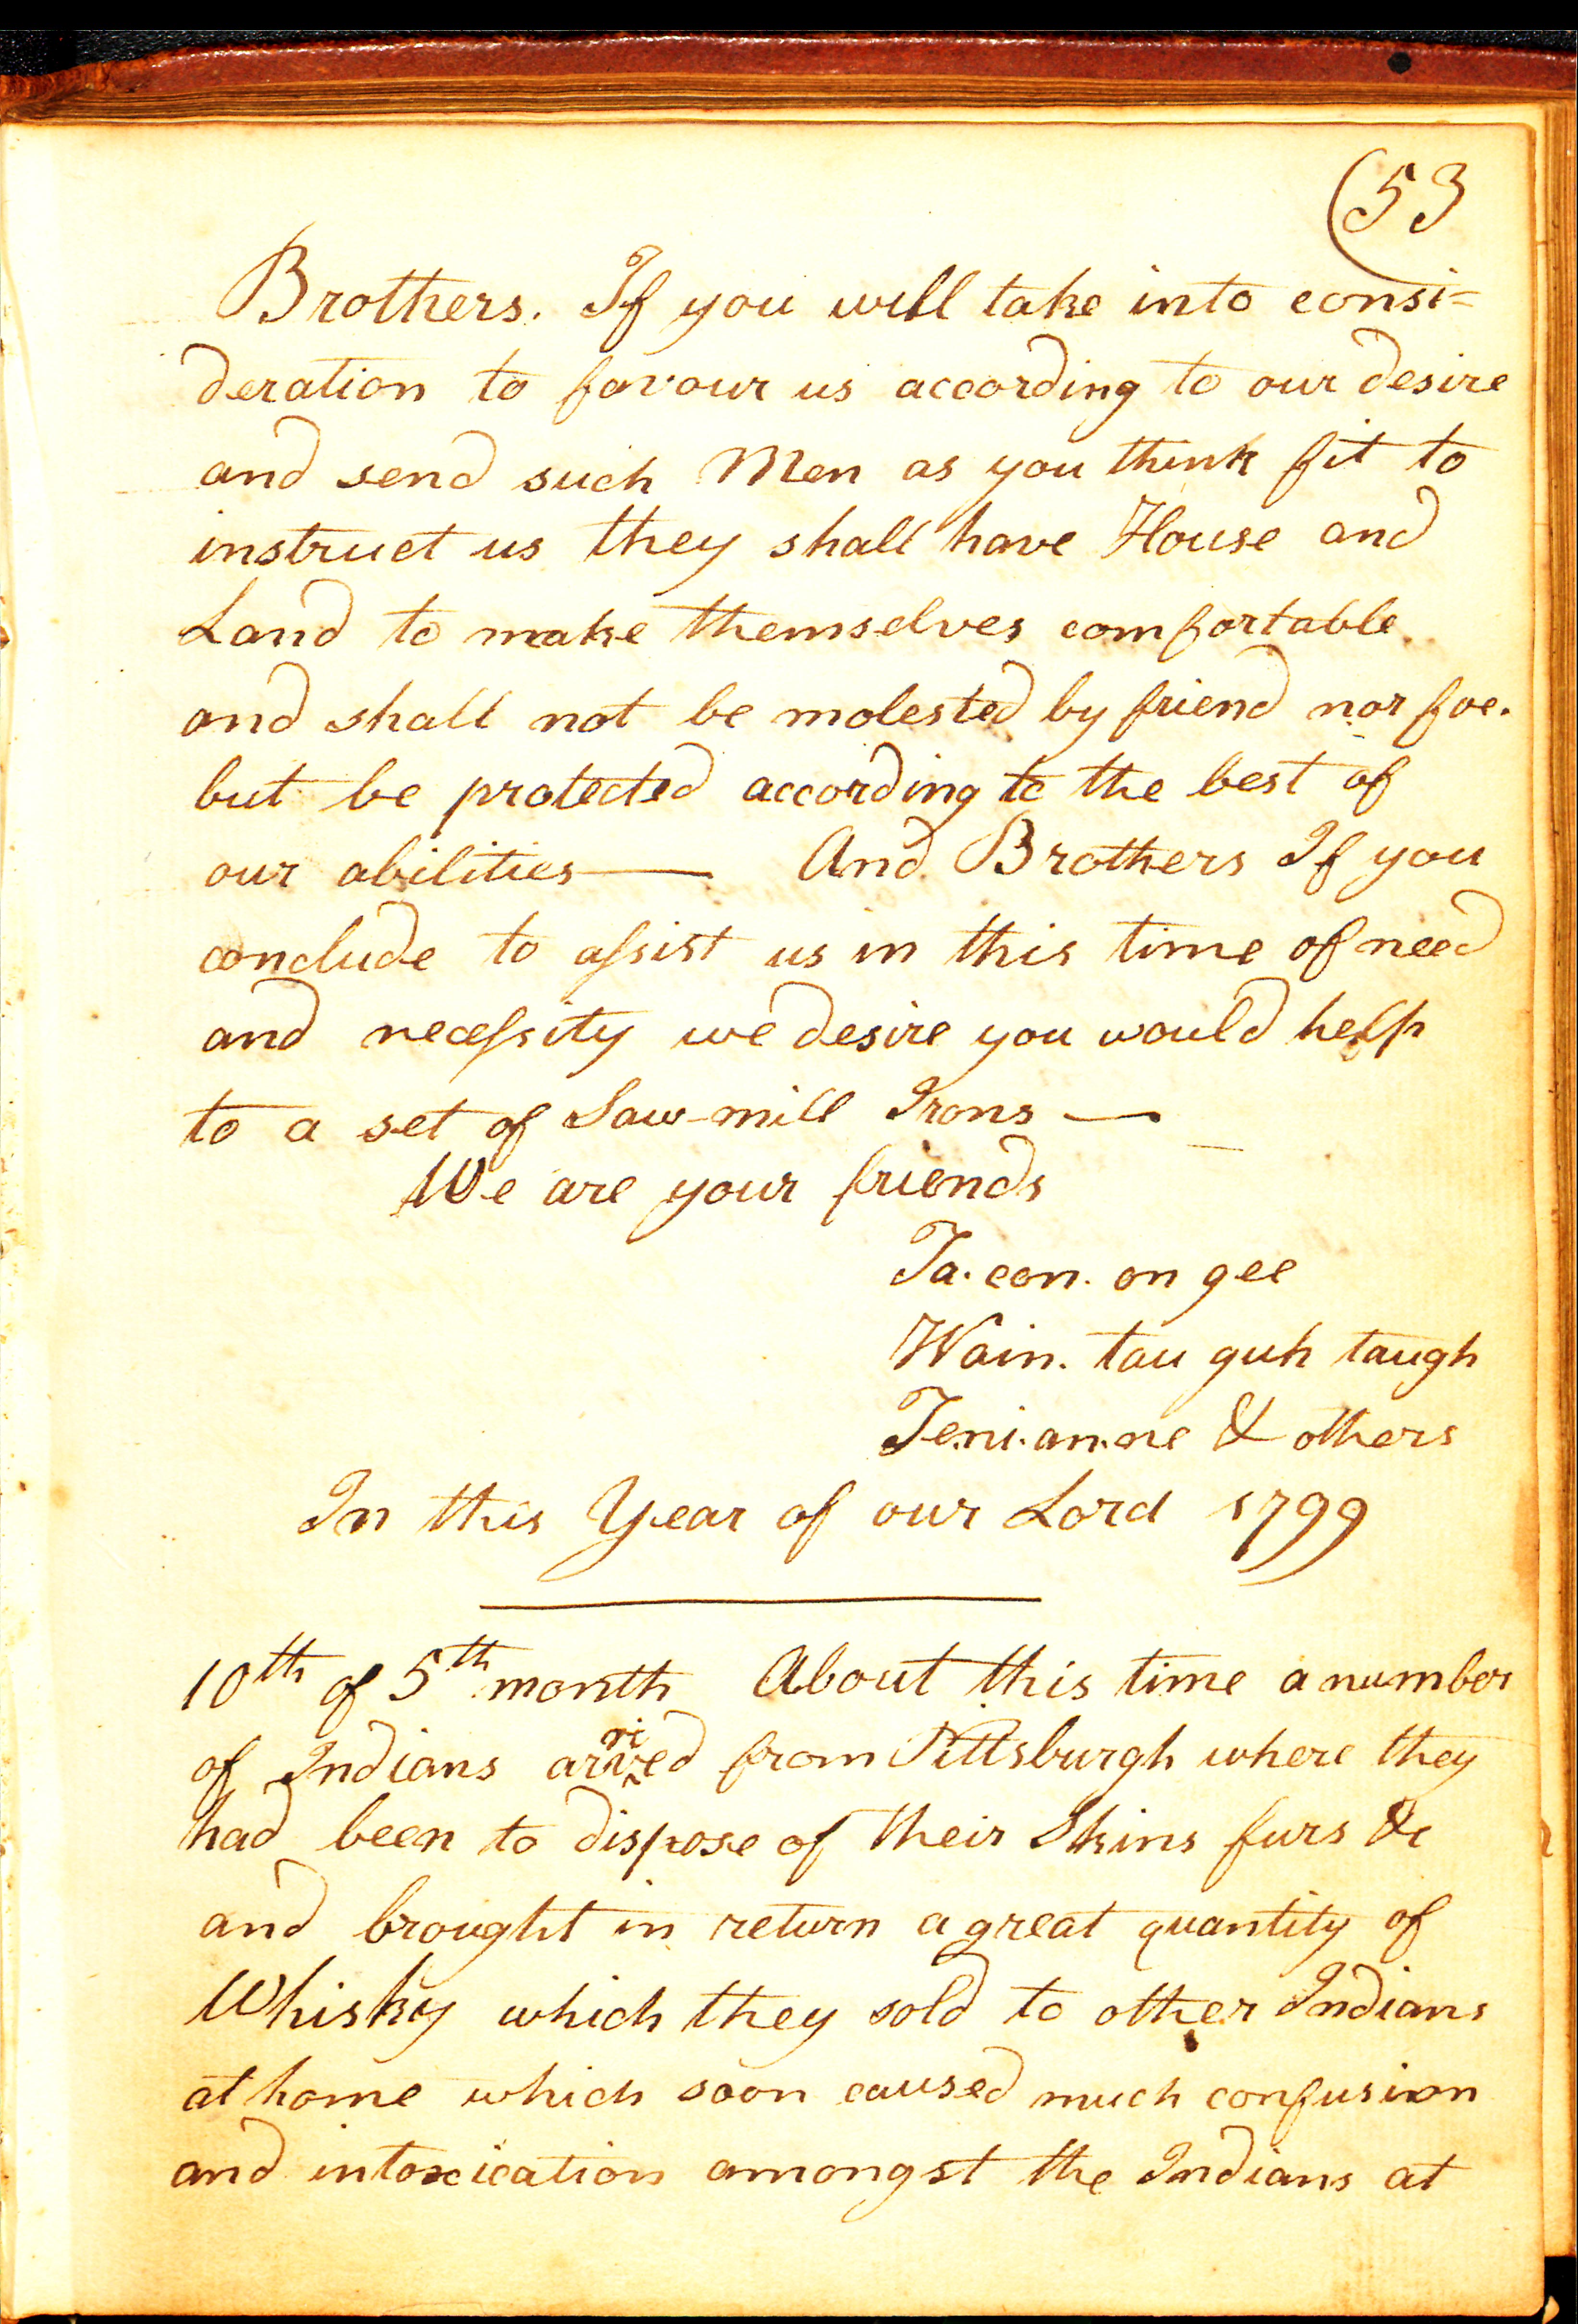 (53
Brothers. If you will take into consi=
deration to favour us according to our desire
and send such Men as you think fit to
instruct us they shall have House and
Land to make themselves comfortable
and shall not be molested by friend nor foe.
but be protected according to the best of
our abilities — And Brothers If you
conclude to aſsist us in this time of need
and neceſsity we desire you would help
to a set of Saw-mill Irons —
We are your friends
Ta. con. on gee
Wain. tau guh taugh
Te.ni.an.ne & others
In this Year of our Lord 1799
10th of 5th month About this time a number
of Indians arrived from Pittsburgh where they
had been to dispose of their Skins furs &c
and brought in return a great quantity of
Whisky which they sold to other Indians
at home which soon caused much confusion
and intoxication amongst the Indians at